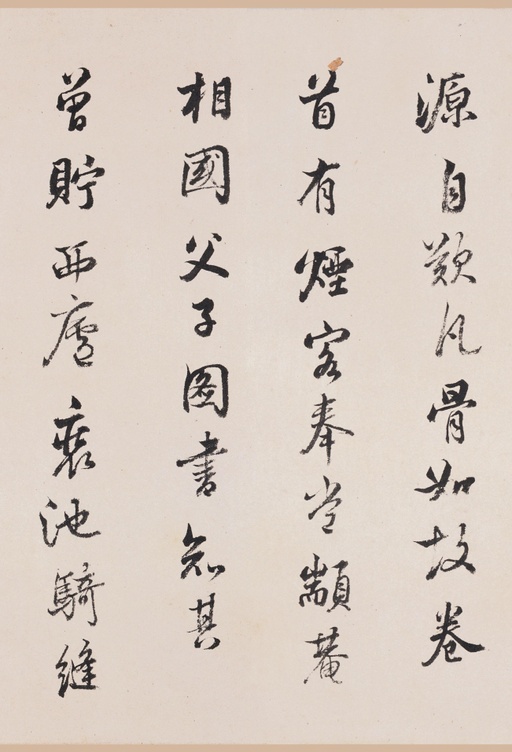 源自歎凡骨如故卷
首有煙客奉常顓菴
相國父子圖書知其
曾貯西廬裹池騎縫